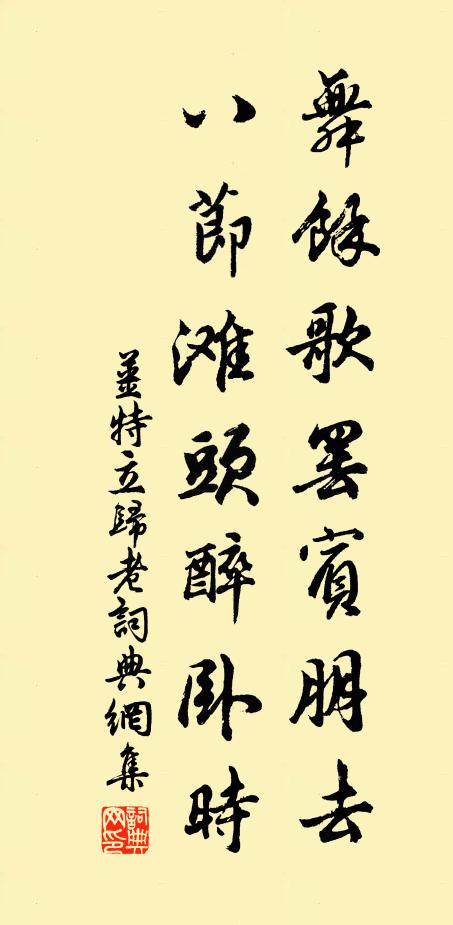 舞餘歌罷賓朋去
八節滩頭醉卧時
薑特立歸老詞典網集
詞典网印